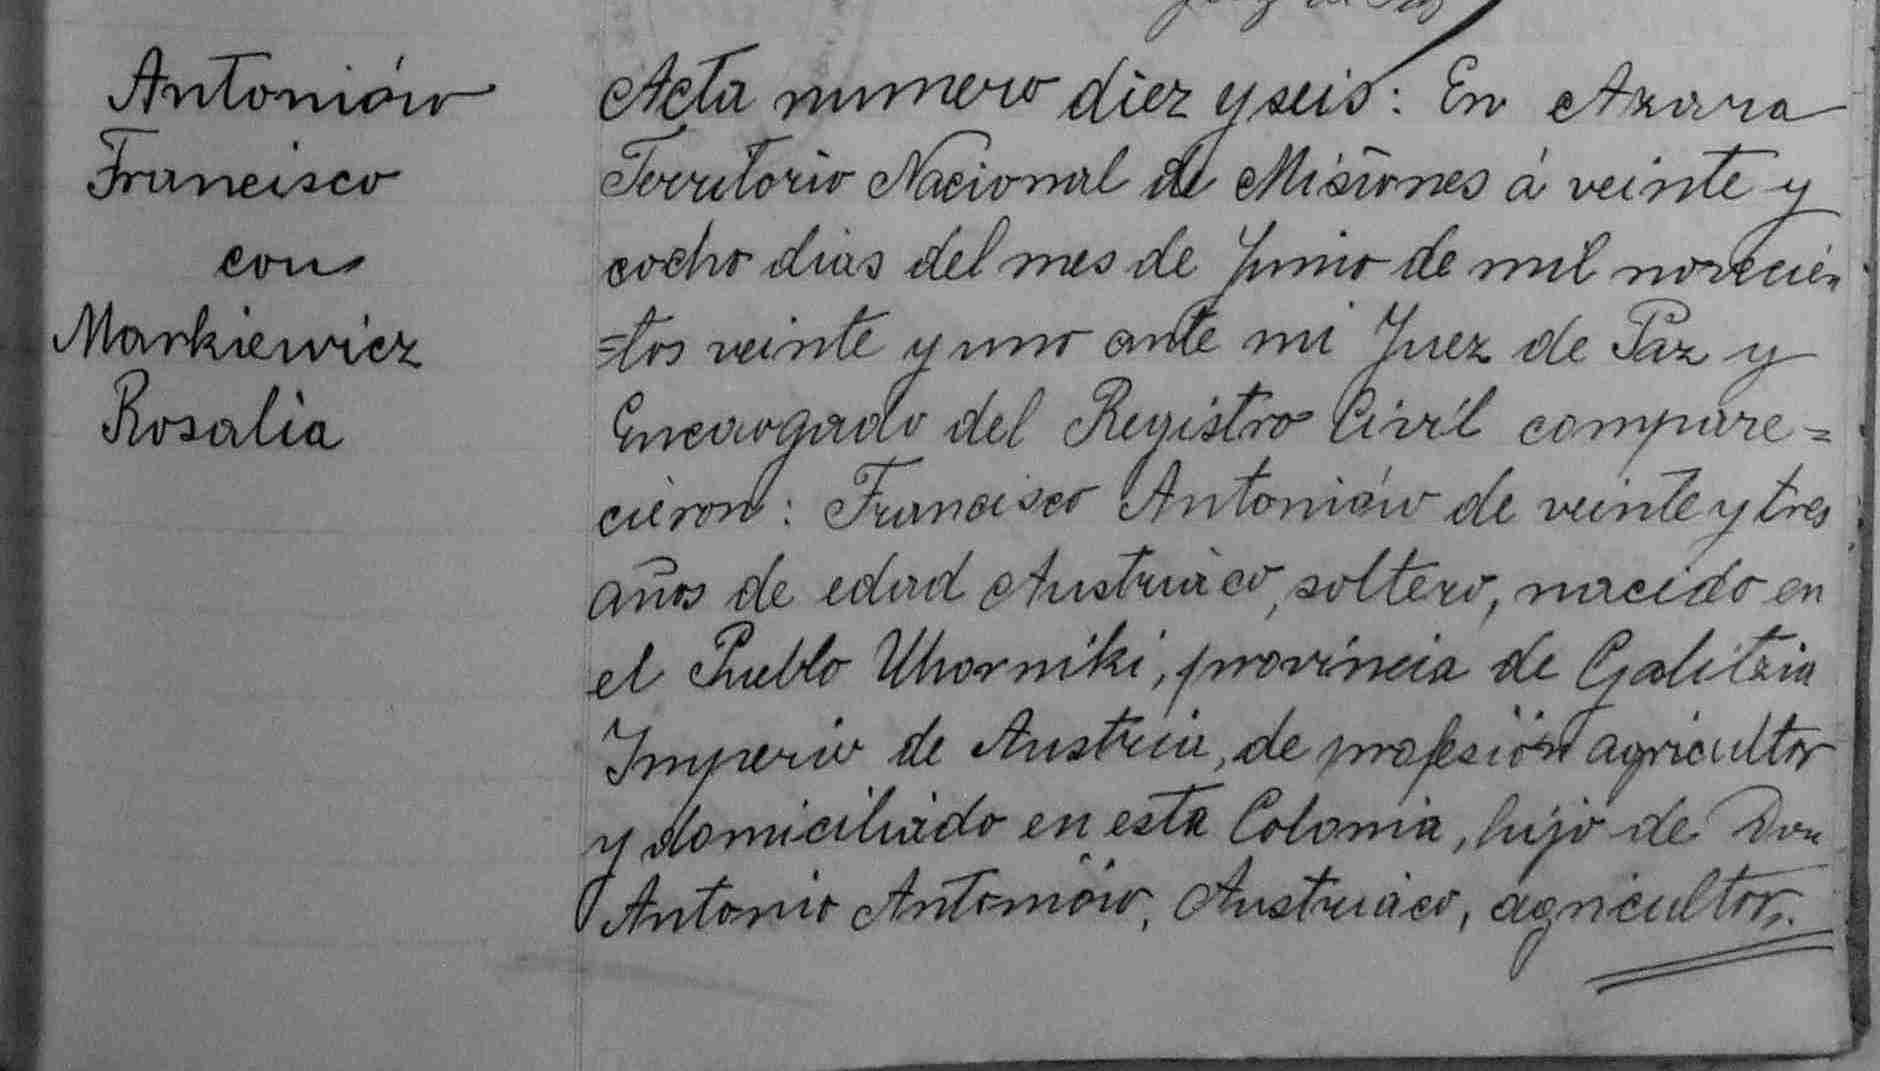 Antoniów
Francisco
con
Markiewicz
Rosalia
Acta numero diez y seis: En Azara
Territorio Nacional de Misiones á veinte y
ocho dias del mes de Junio de mil novecien
=tos veinte y uno ante mi Juez de Paz y
Encargado del Registro Civil compare=
cieron: Francisco Antoniów de veinte y tres
años de edad Austriaco, soltero, nacido en
el Pueblo Uhorniki, provincia de Galitzia
Imperio de Austria, de profesión agricultor
y domiciliado en esta Colonia, hijo de Don
Antonio Antoniów, Austriaco, agricultor.